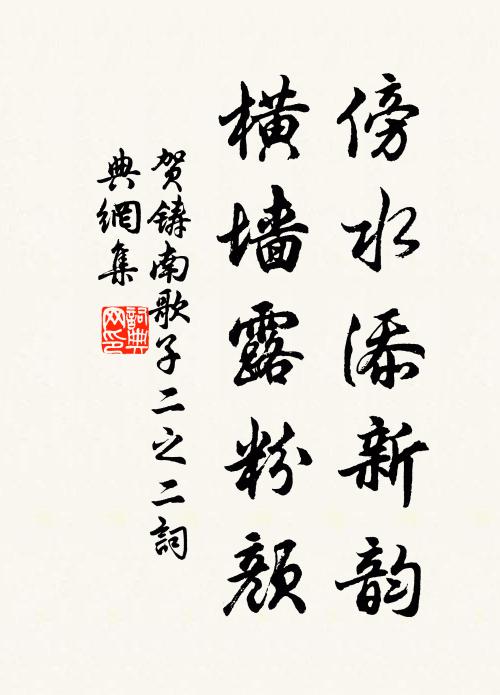 傍水添新韵
横墙露粉颜
贺铸南歌子二之二詞
典網集
詞典网印